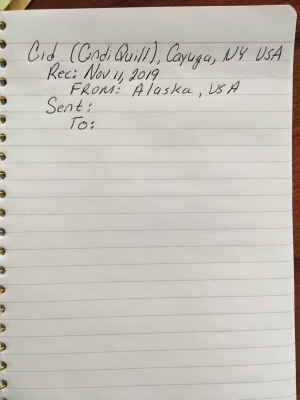 Cid (Cindi Quill), Cayuga, NY USA
Rec: Nov 11, 2019
FROM: Alaska, USA
Sent:
To: